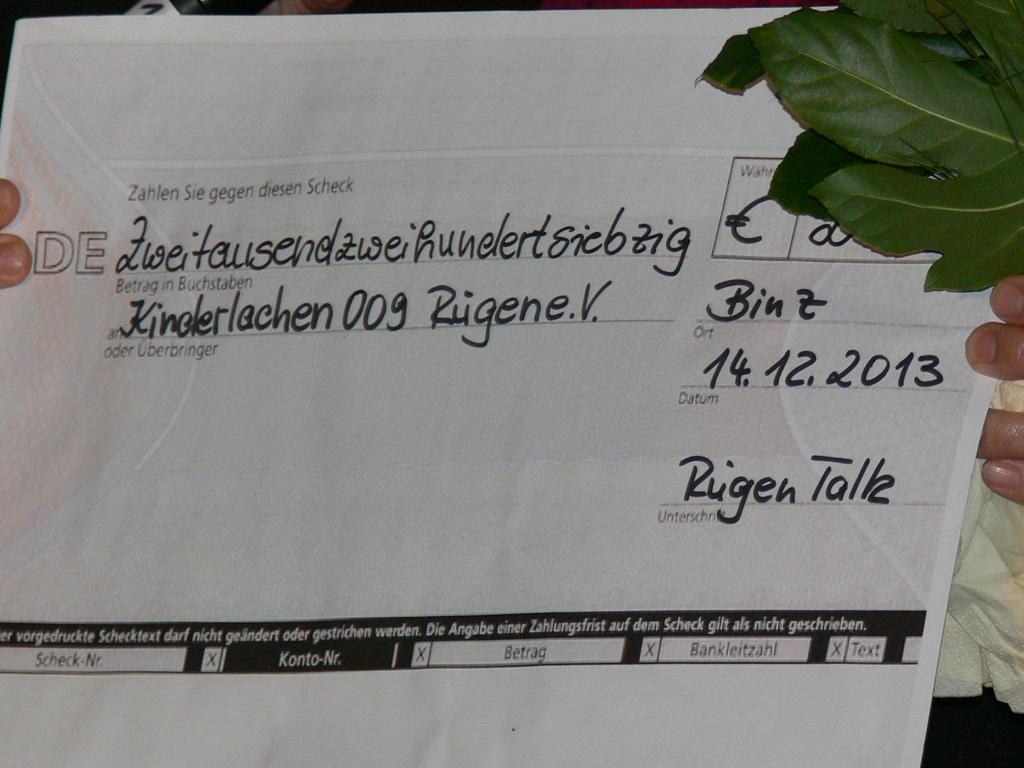 Zahlen Sie gegen diesen Scheck
DE Zweitausendzweihundertsiebzig €
Betrag in Buchstaben
an Kinderlachen 009 Rügen e.V.
oder Überbringer
Binz
Ort
14.12.2013
Datum
Rügen Talk
vorgedruckte Schecktext darf nicht geändert oder gestrichen werden. Die Angabe einer Zahlungsfrist auf dem Scheck gilt als nicht geschrieben.
Scheck-Nr. X Konto-Nr. X Betrag X Bankleitzahl X Text